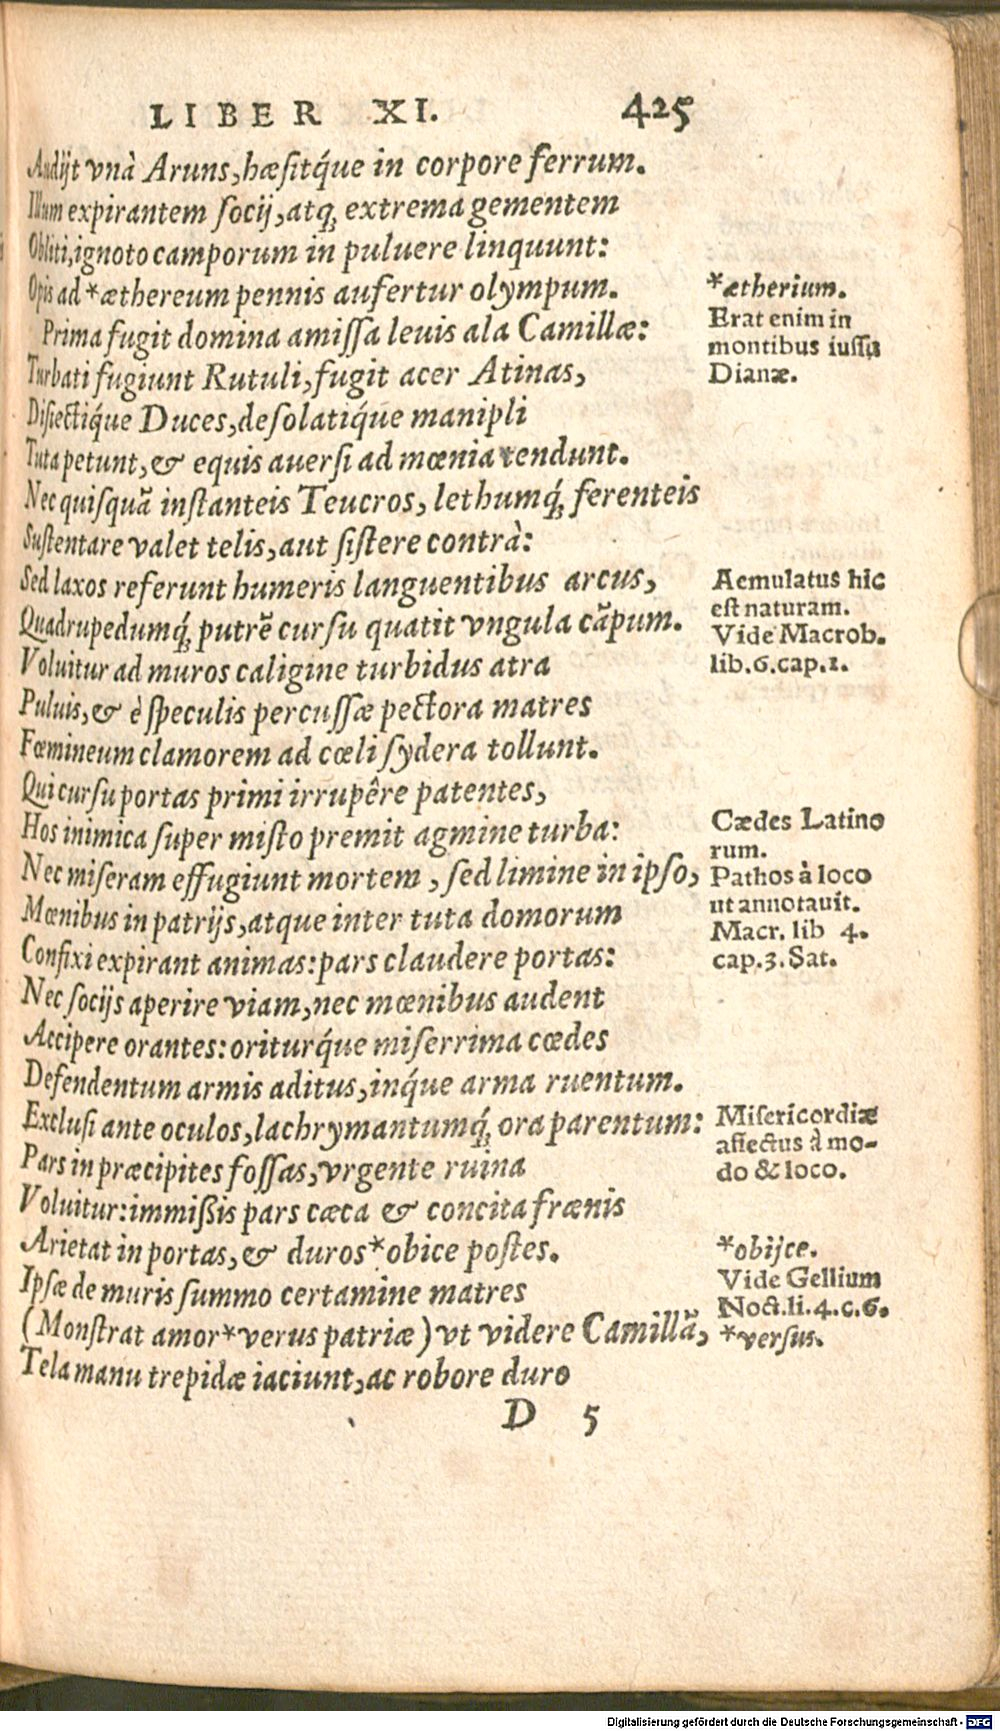 LIBER XI. 425
Audijt vnà Aruns, hæsitq́ue in corpore ferrum.
Illum expirantem socij, atq; extrema gementem
Obliti, ignoto camporum in puluere linquunt:
Opis ad *æthereum pennis aufertur olympum.
*ætherium.
Erat enim in
montibus iussu
Dianæ.
Prima fugit domina amissa leuis ala Camillæ:
Turbati fugiunt Rutuli, fugit acer Atinas,
Disiectiq́ue Duces, desolatiq́ue manipli
Tuta petunt, & equis auersi ad mœnia tendunt.
Nec quisquã instanteis Teucros, lethumq́; ferenteis
Sustentare valet telis, aut sistere contrà:
Sed laxos referunt humeris languentibus arcus,
Quadrupedumq́; putrẽ cursu quatit vngula cãpum.
Aemulatus hic
est naturam.
Vide Macrob.
lib.6.cap.1.
Voluitur ad muros caligine turbidus atra
Puluis, & è speculis percussæ pectora matres
Fœmineum clamorem ad cœli sydera tollunt.
Qui cursu portas primi irrupêre patentes,
Hos inimica super misto premit agmine turba:
Nec miseram effugiunt mortem, sed limine in ipso,
Mœnibus in patrijs, atque inter tuta domorum
Confixi expirant animas: pars claudere portas:
Cædes Latino
rum.
Pathos à loco
ut annotauit.
Macr. lib 4.
cap.3. Sat.
Nec socijs aperire viam, nec mœnibus audent
Accipere orantes: oriturq́ue miserrima cœdes
Defendentum armis aditus, inq́ue arma ruentum.
Exclusi ante oculos, lachrymantumq́; ora parentum:
Pars in præcipites fossas, vrgente ruina
Misericordiæ
affectus à mo-
do & loco.
Voluitur: immißis pars cæca & concita frænis
Arietat in portas, & duros *obice postes.
Ipsæ de muris summo certamine matres
(Monstrat amor *verus patriæ) vt videre Camillã,
*obijce.
Vide Gellium
Noct.li.4.c.6.
*versus.
Tela manu trepidæ iaciunt, ac robore duro
D 5
Digitalisierung gefördert durch die Deutsche Forschungsgemeinschaft - DFG